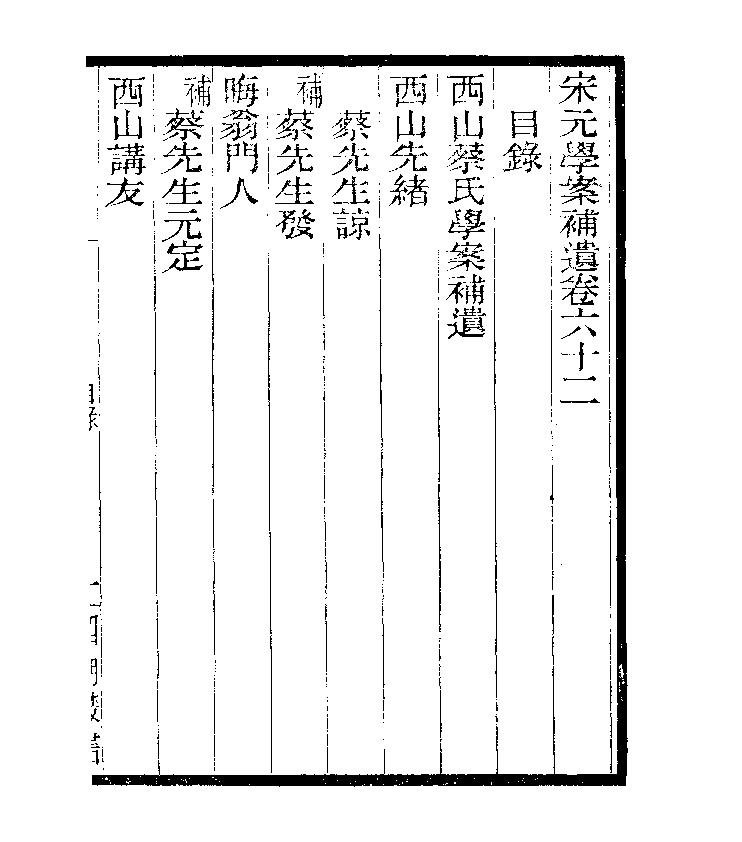 宋元學案補遺卷六十二
目錄
西山蔡氏學案補遺
西山先緒
蔡先生諒
補蔡先生發
晦翁門人
補蔡先生元定
西山講友
目錄